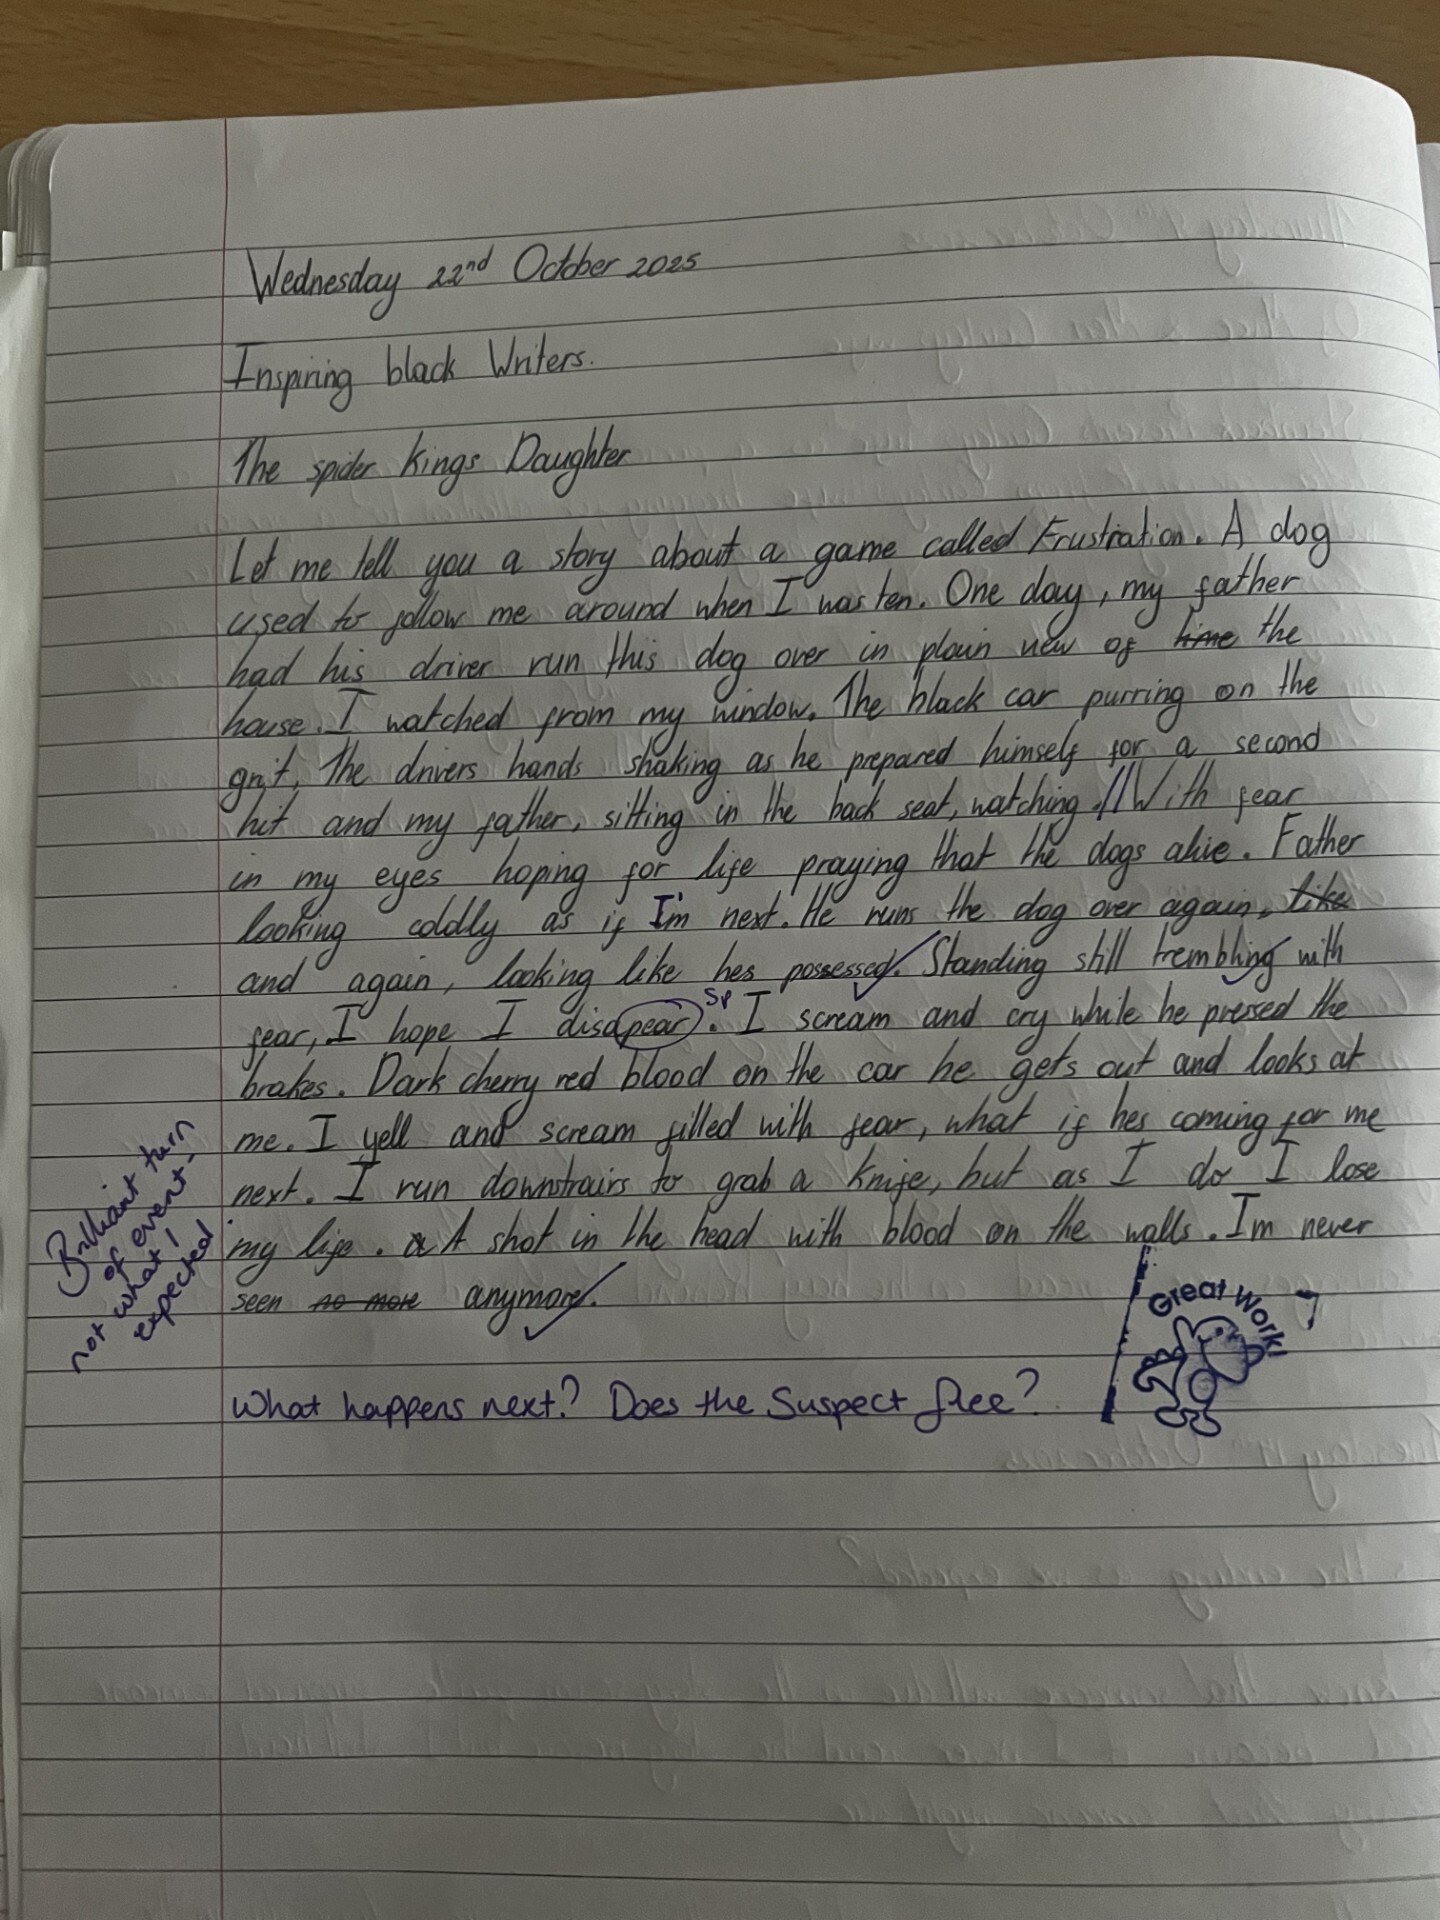 Wednesday 22nd October 2025
Inspiring black Writers.
The spider Kings Daughter
Let me tell you a story about a game called Frustration. A dog
used to follow me around when I was ten. One day, my father
had his driver run this dog over in plain view of time the
house. I watched from my window. The black car purring on the
grit, the drivers hands shaking as he prepared himself for a second
hit and my father, sitting in the back seat, watching.//With fear
in my eyes hoping for life praying that the dogs alive. Father
looking coldly as if I'm next. He runs the dog over again, like
and again, looking like hes possessed. Standing still trembling with
fear, I hope I disapear. Sp I scream and cry while he pressed the
brakes. Dark cherry red blood on the car he gets out and looks at
me. I yell and scream filled with fear, what if hes coming for me
next. I run downstrairs to grab a knife, but as I do I lose
my life. a A shot in the head with blood on the walls. Im never
seen no more anymore.
Brilliant turn
of event -
not what I
expected
Great Work!
What happens next? Does the Suspect flee?